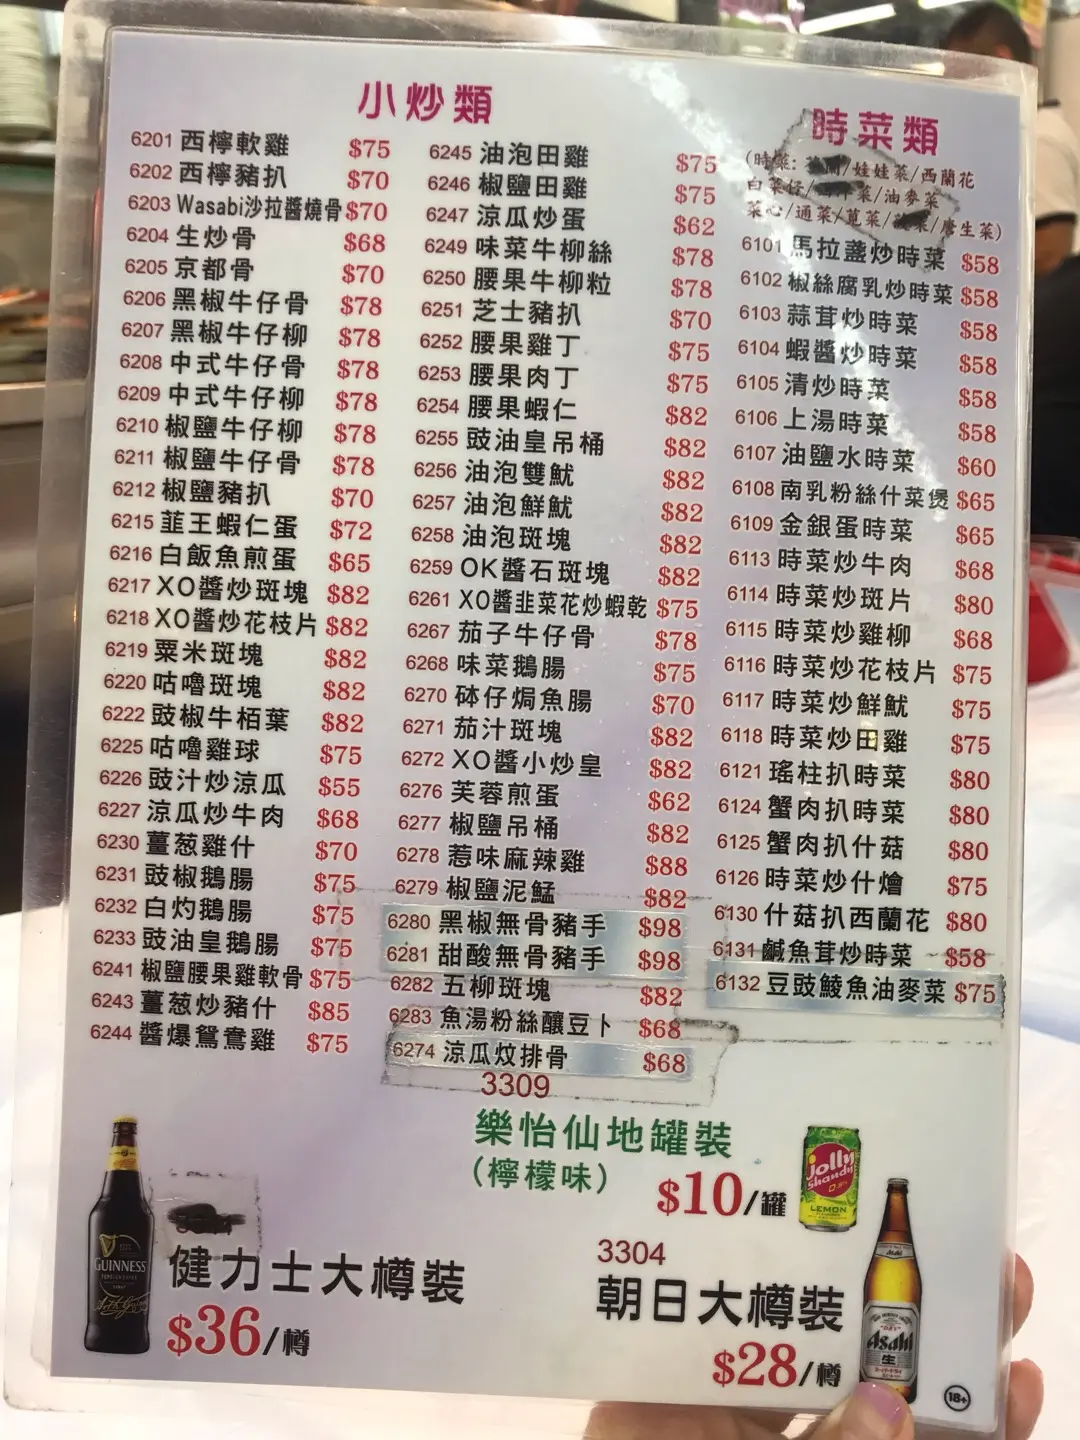 小炒類
6201 西檸軟雞 $75
6202 西檸豬扒 $70
6203 Wasabi沙拉醬燒骨 $70
6204 生炒骨 $68
6205 京都骨 $70
6206 黑椒牛仔骨 $78
6207 黑椒牛仔柳 $78
6208 中式牛仔骨 $78
6209 中式牛仔柳 $78
6210 椒鹽牛仔柳 $78
6211 椒鹽牛仔骨 $78
6212 椒鹽豬扒 $70
6215 韮王蝦仁蛋 $72
6216 白飯魚煎蛋 $65
6217 XO醬炒斑塊 $82
6218 XO醬炒花枝片 $82
6219 粟米斑塊 $82
6220 咕嚕斑塊 $82
6222 豉椒牛栢葉 $82
6225 咕嚕雞球 $75
6226 豉汁炒涼瓜 $55
6227 涼瓜炒牛肉 $68
6230 薑葱雞什 $70
6231 豉椒鵝腸 $75
6232 白灼鵝腸 $75
6233 豉油皇鵝腸 $75
6241 椒鹽腰果雞軟骨 $75
6243 薑葱炒豬什 $85
6244 醬爆鴛鴦雞 $75
6245 油泡田雞 $75
6246 椒鹽田雞 $75
6247 涼瓜炒蛋 $62
6249 味菜牛柳絲 $78
6250 腰果牛柳粒 $78
6251 芝士豬扒 $70
6252 腰果雞丁 $75
6253 腰果肉丁 $75
6254 腰果蝦仁 $82
6255 豉油皇吊桶 $82
6256 油泡雙魷 $82
6257 油泡鮮魷 $82
6258 油泡斑塊 $82
6259 OK醬石斑塊 $82
6261 XO醬韭菜花炒蝦乾 $75
6267 茄子牛仔骨 $78
6268 味菜鵝腸 $75
6270 砵仔焗魚腸 $70
6271 茄汁斑塊 $82
6272 XO醬小炒皇 $82
6276 芙蓉煎蛋 $62
6277 椒鹽吊桶 $82
6278 惹味麻辣雞 $88
6279 椒鹽泥鯭 $82
6280 黑椒無骨豬手 $98
6281 甜酸無骨豬手 $98
6282 五柳斑塊 $82
6283 魚湯粉絲釀豆卜 $68
6274 涼瓜炆排骨 $68
時菜類
(時菜: /娃娃菜/西蘭花
白菜仔/ 菜/油麥菜
菜心/通菜/莧菜/ /唐生菜)
6101 馬拉盞炒時菜 $58
6102 椒絲腐乳炒時菜 $58
6103 蒜茸炒時菜 $58
6104 蝦醬炒時菜 $58
6105 清炒時菜 $58
6106 上湯時菜 $58
6107 油鹽水時菜 $60
6108 南乳粉絲什菜煲 $65
6109 金銀蛋時菜 $65
6113 時菜炒牛肉 $68
6114 時菜炒斑片 $80
6115 時菜炒雞柳 $68
6116 時菜炒花枝片 $75
6117 時菜炒鮮魷 $75
6118 時菜炒田雞 $75
6121 瑤柱扒時菜 $80
6124 蟹肉扒時菜 $80
6125 蟹肉扒什菇 $80
6126 時菜炒什燴 $75
6130 什菇扒西蘭花 $80
6131 鹹魚茸炒時菜 $58
6132 豆豉鯪魚油麥菜 $75
3309
樂怡仙地罐裝
(檸檬味)
$10/罐
Jolly
Shandy
LEMON
GUINNESS
健力士大樽裝
$36/樽
3304
朝日大樽裝
$28/樽
Asahi
生
18+